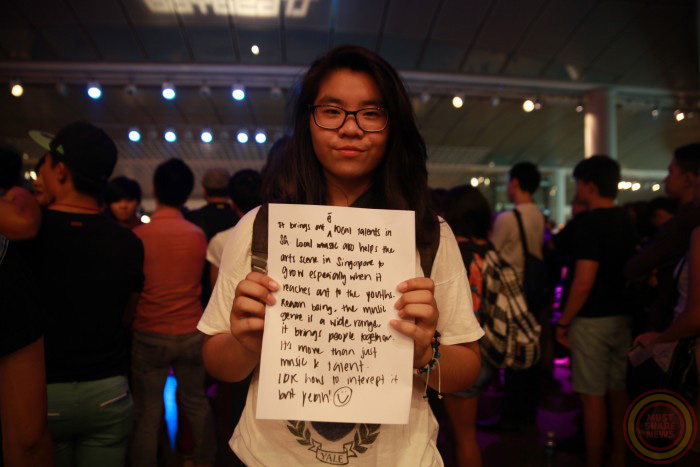 It brings out ë local talents in
SG. Local music also helps the
arts scene in Singapore to
grow especially when it
reaches out to the youths.
Reason being, the music
genre is a wide range
it brings people together
It's more than just
music & talent.
IDK how to interept it
but yeah!
YALE
MUST
SHARE
NEWS